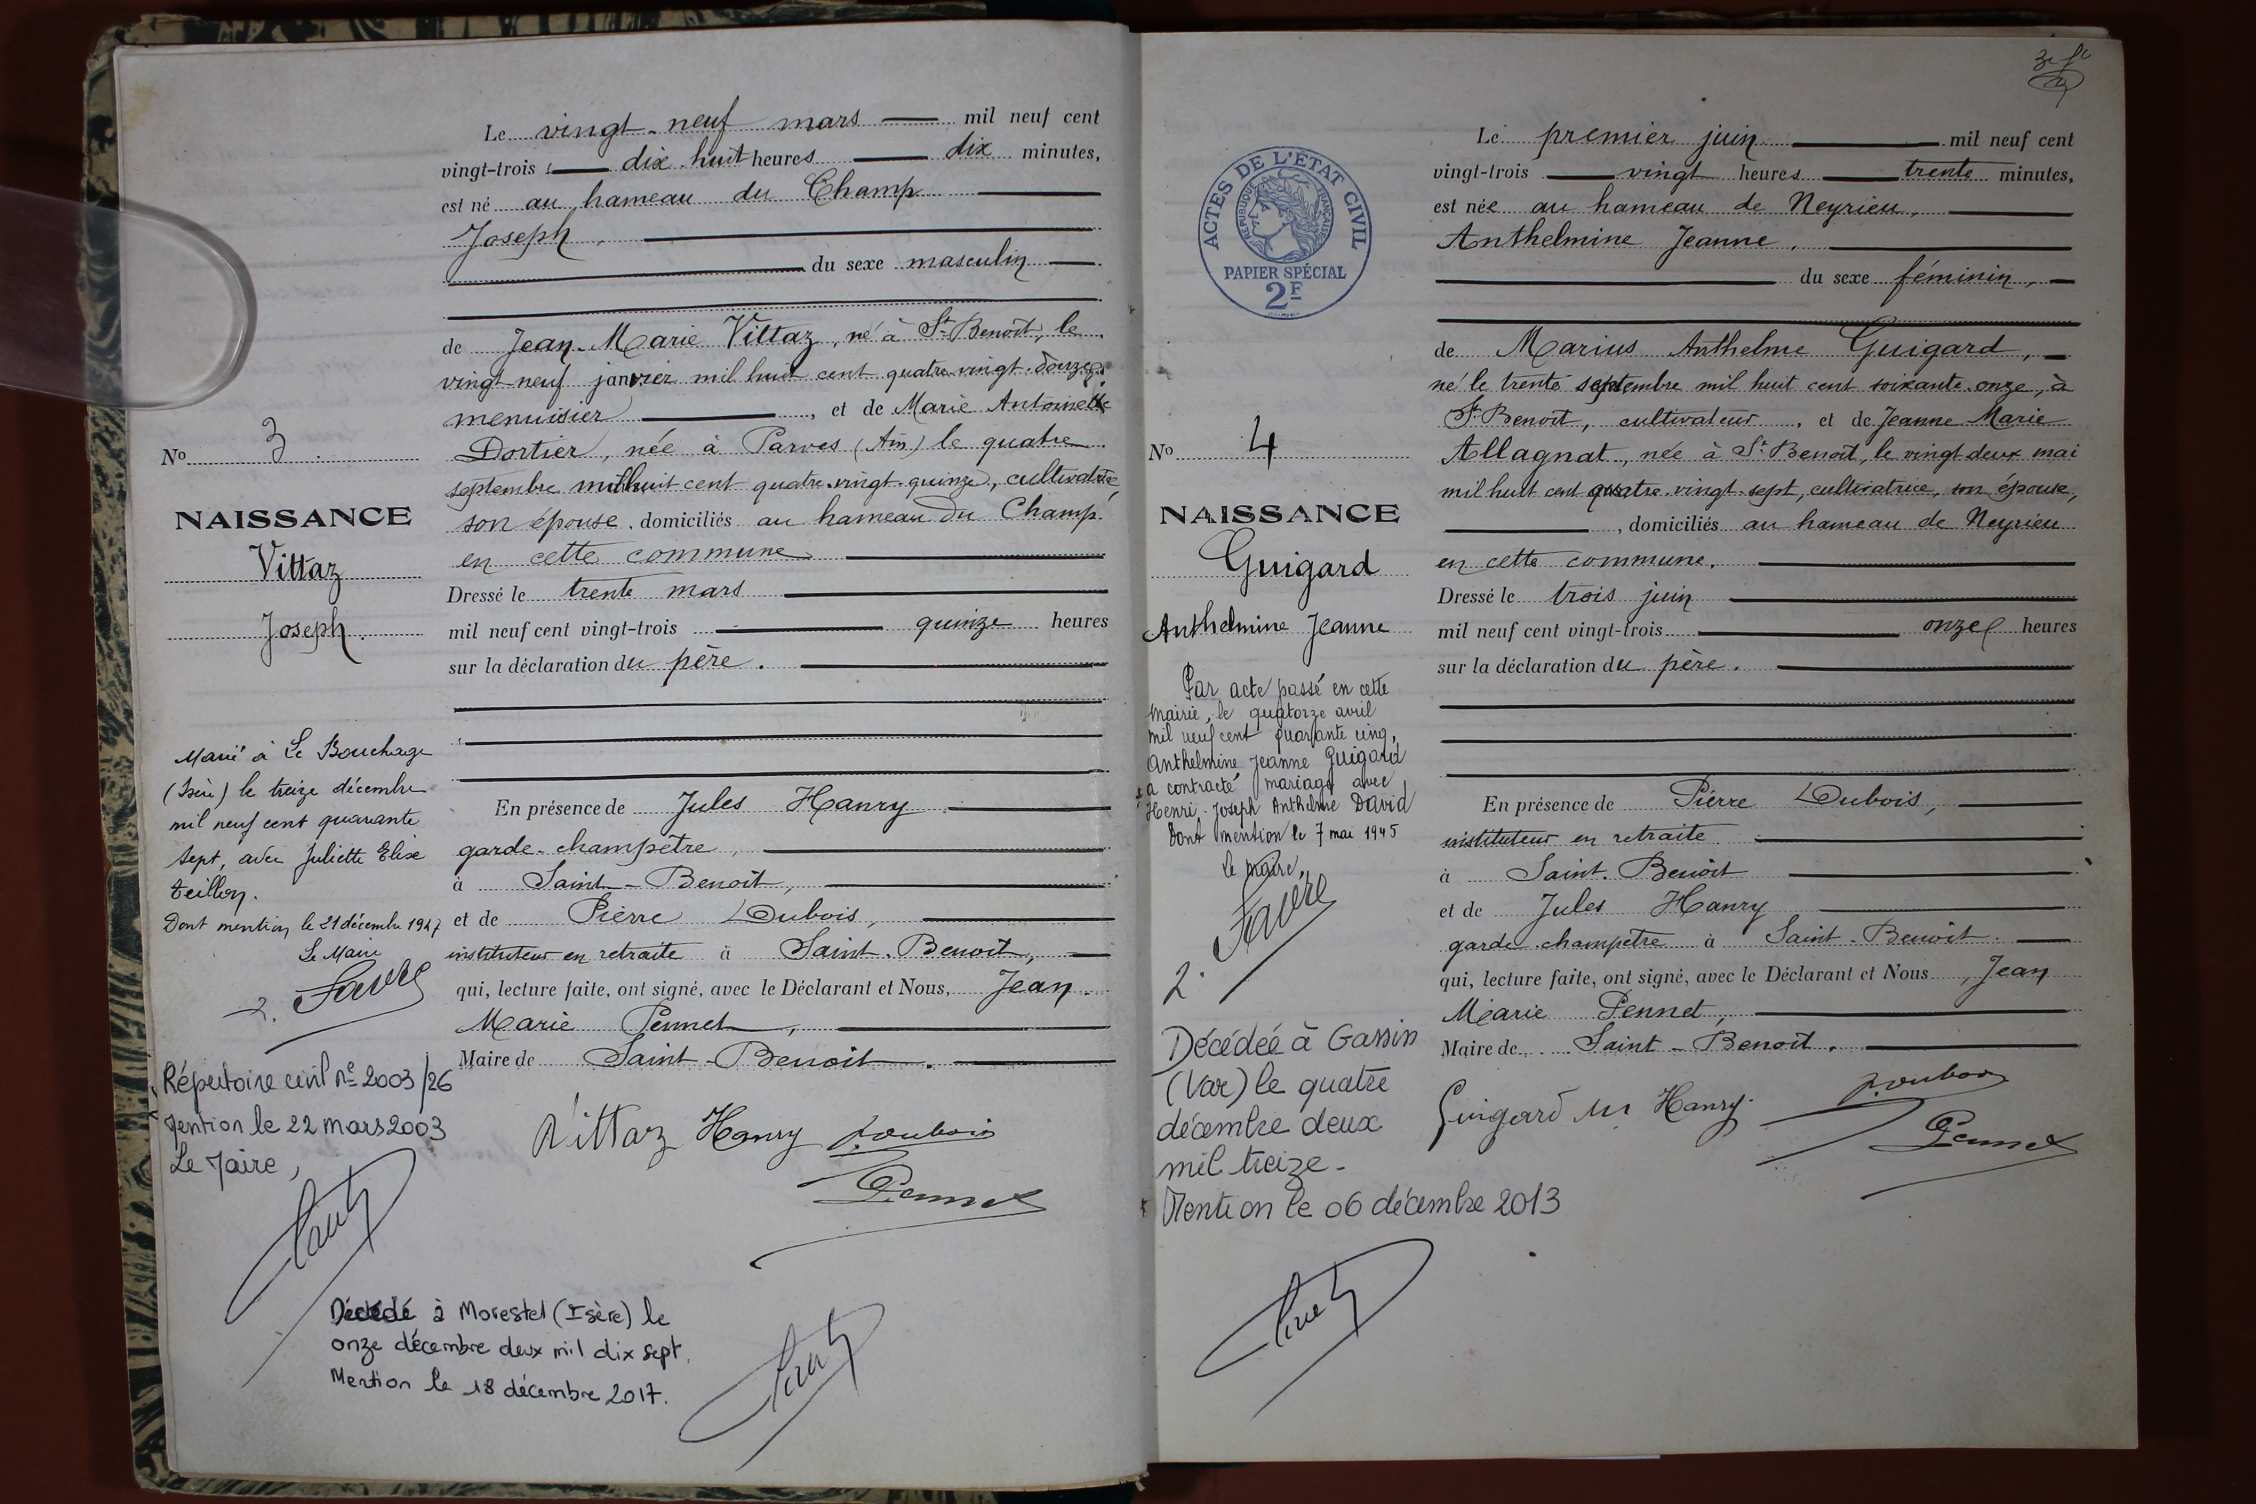 Le vingt-neuf mars mil neuf cent
vingt-trois dix-huit heures dix minutes,
est né au hameau du Champ
Joseph.
du sexe masculin
de Jean-Marie Vittaz, né à St Benoît, le
vingt-neuf janvier mil huit cent quatre-vingt-douze,
menuisier, et de Marie Antoinette
Dortier, née à Parves (Ain) le quatre
septembre mil huit cent quatre-vingt-quinze, cultivatrice,
son épouse, domiciliés au hameau du Champ
en cette commune
Dressé le trente mars
mil neuf cent vingt-trois quinze heures
sur la déclaration du père.
En présence de Jules Hanry
garde-champêtre,
à Saint-Benoît,
et de Pierre Dubois,
instituteur en retraite à Saint-Benoît,
qui, lecture faite, ont signé, avec le Déclarant et Nous, Jean
Marie Pennet,
Maire de Saint-Benoît.
Vittaz Hanry P. Dubois
Pennet
No 3.
NAISSANCE
Vittaz
Joseph.
Marié à Le Bouchage
(Isère) le treize décembre
mil neuf cent quarante
sept, avec Juliette Elise
Teillon.
Dont mention le 21 décembre 1947
Le Maire
Favre
Répertoire civil n° 2003/26
Mention le 22 mars 2003
Le Maire,
Décédé à Morestel (Isère) le
onze décembre deux mil dix sept.
Mention le 18 décembre 2017.
ACTES DE L'ÉTAT CIVIL
RÉPUBLIQUE FRANÇAISE
PAPIER SPÉCIAL
2F
No 4
NAISSANCE
Guigard
Anthelmine Jeanne
Par acte passé en cette
mairie, le quatorze avril
mil neuf cent quarante cinq,
Anthelmine Jeanne Guigard
a contracté mariage avec
Henri Joseph Anthelme David
Dont mention le 7 mai 1945
le maire,
Favre
Décédée à Gassin
(Var) le quatre
décembre deux
mil treize.
Mention le 06 décembre 2013
Le premier juin mil neuf cent
vingt-trois vingt heures trente minutes,
est née au hameau de Neyrieu,
Anthelmine Jeanne.
du sexe féminin,
de Marius Anthelme Guigard,
né le trente septembre mil huit cent soixante-onze, à
St Benoît, cultivateur, et de Jeanne Marie
Allagnat, née à St Benoît, le vingt-deux mai
mil huit cent quatre-vingt-sept, cultivatrice, son épouse,
, domiciliés au hameau de Neyrieu
en cette commune.
Dressé le trois juin
mil neuf cent vingt-trois onze heures
sur la déclaration du père.
En présence de Pierre Dubois,
instituteur en retraite
à Saint-Benoît
et de Jules Hanry
garde-champêtre à Saint-Benoît.
qui, lecture faite, ont signé, avec le Déclarant et Nous, Jean
Marie Pennet,
Maire de Saint-Benoît.
Guigard M Hanry P. Dubois
Pennet